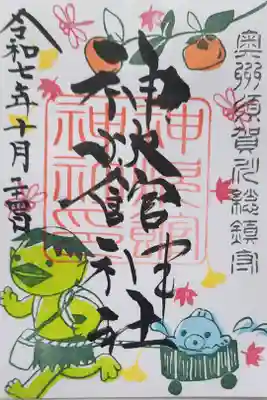 奥州須賀川総鎮守
神炊館神社
神炊館
神社印
令和七年十月